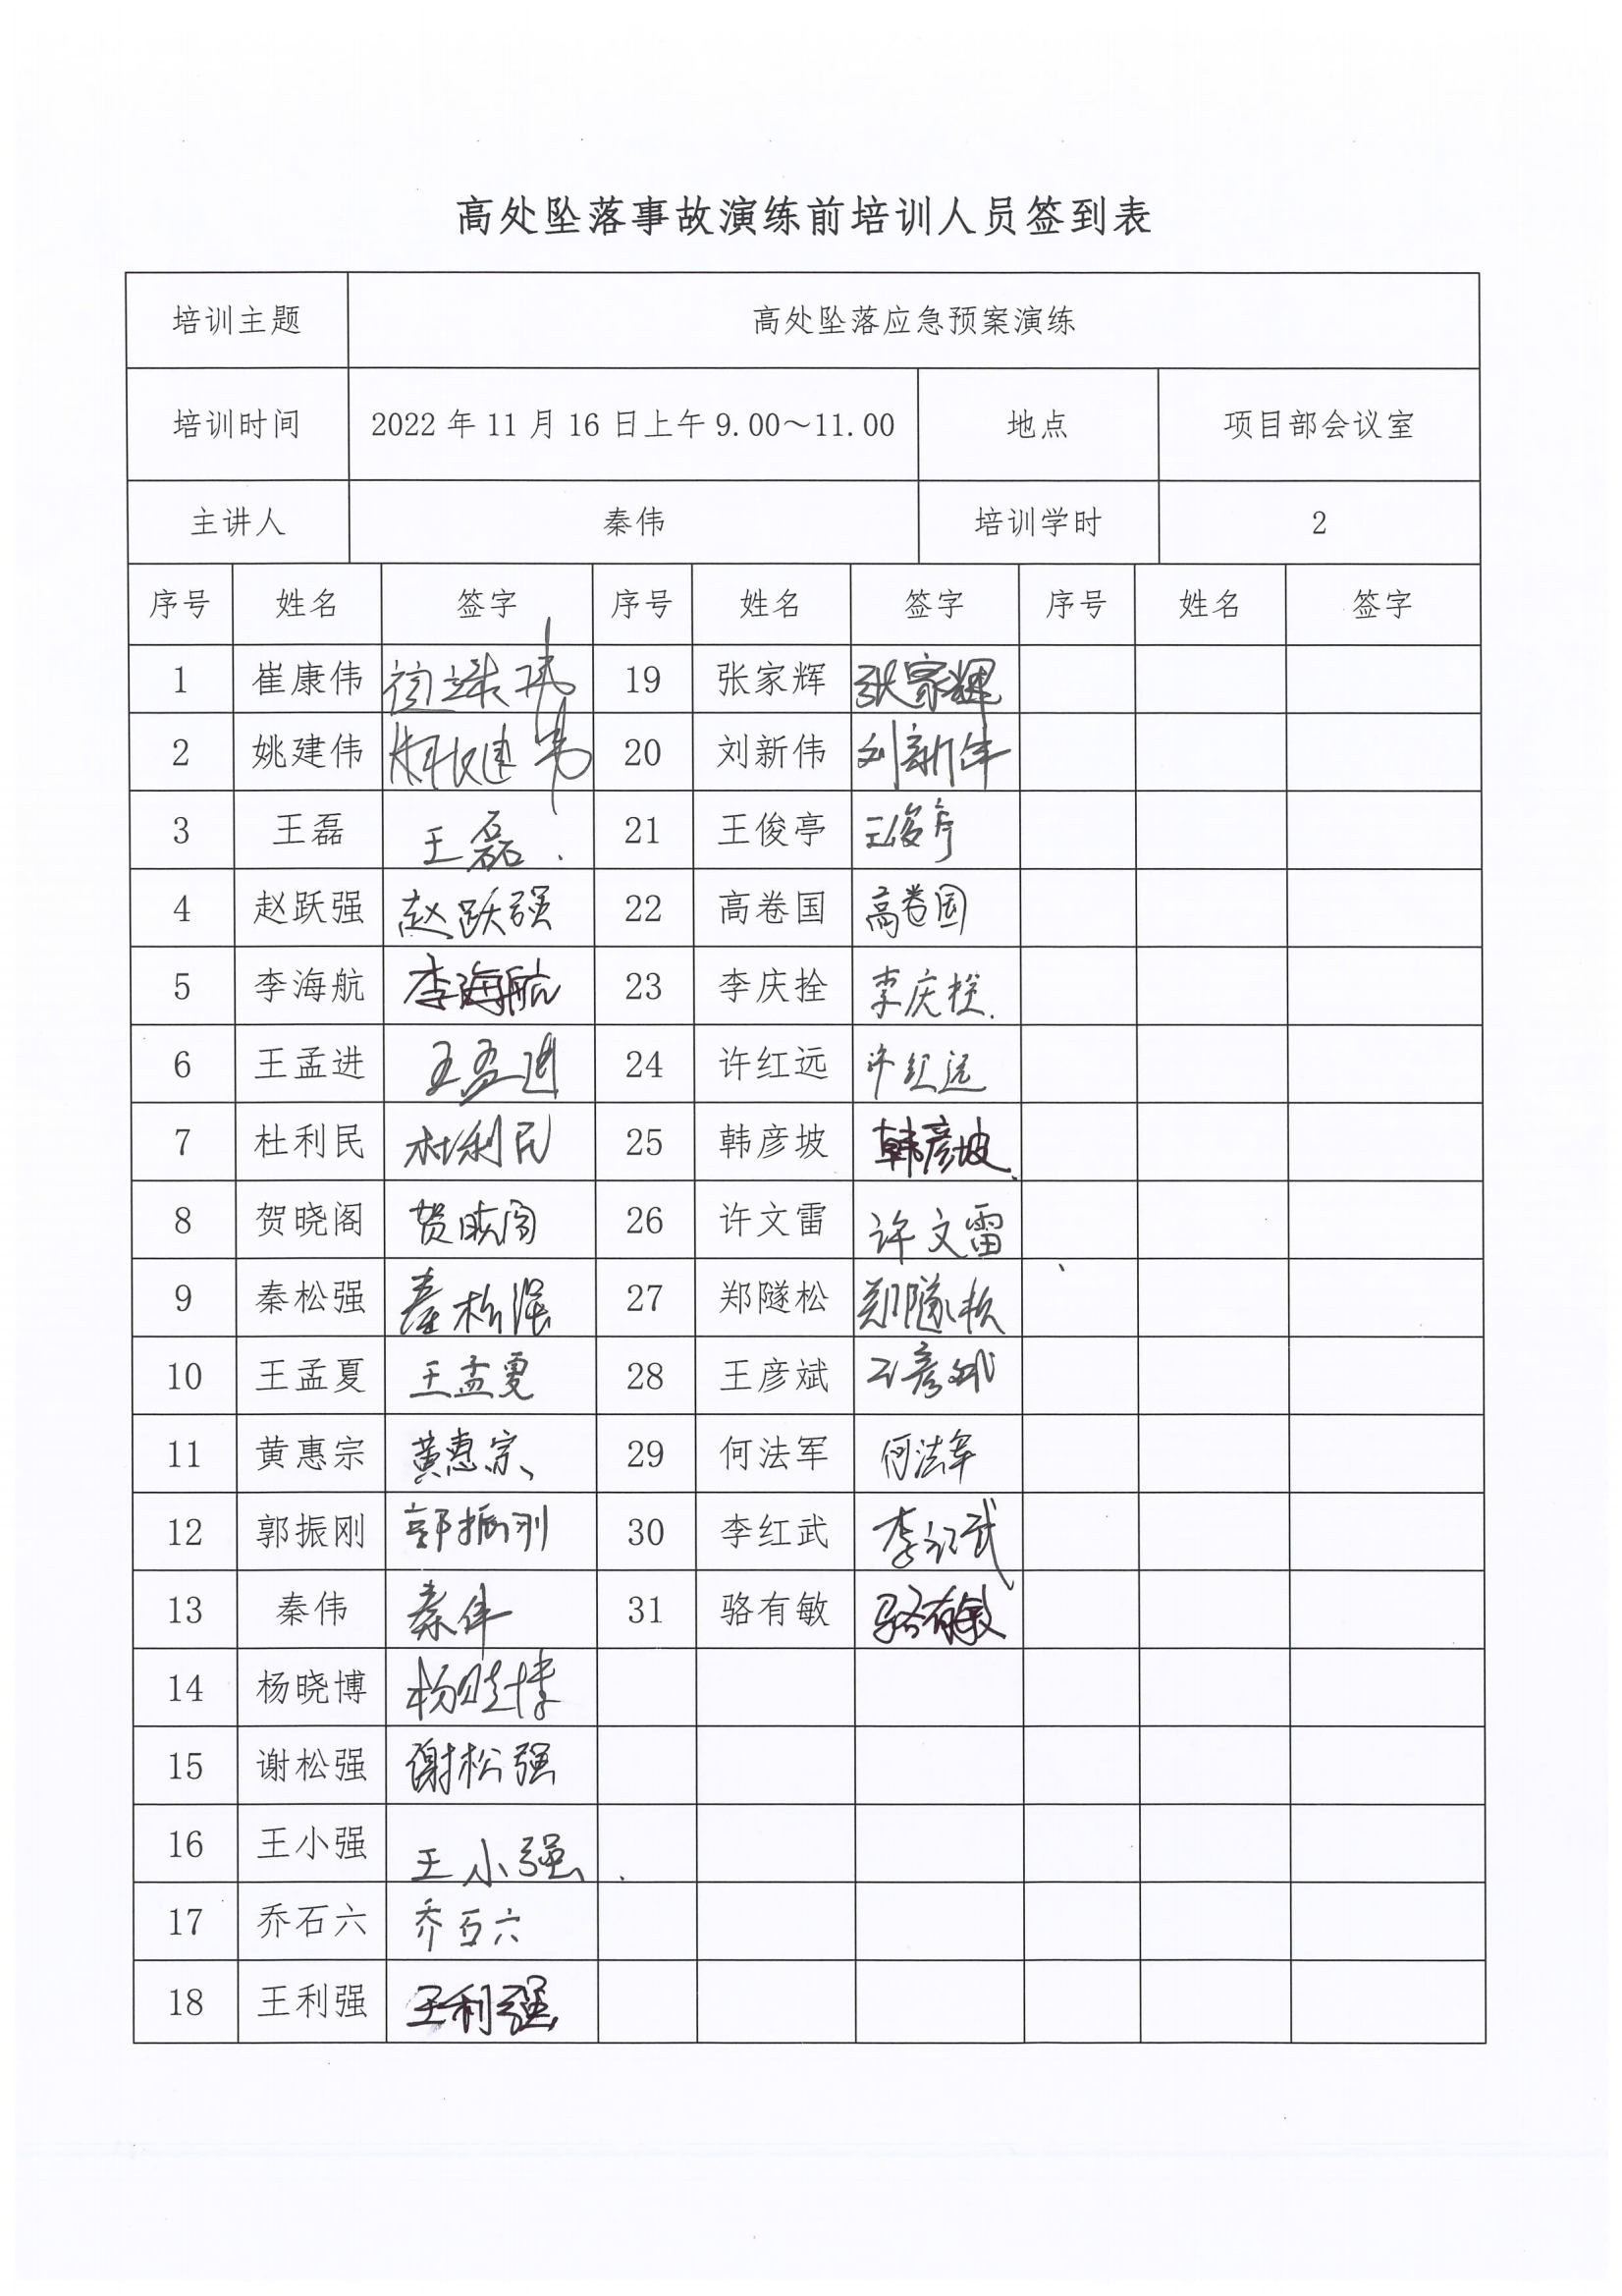 高处坠落事故演练前培训人员签到表
培训主题 高处坠落应急预案演练
培训时间 2022年11月16日上午9.00～11.00 地点 项目部会议室
主讲人 秦伟 培训学时 2
序号 姓名 签字 序号 姓名 签字 序号 姓名 签字
1 崔康伟 19 张家辉 张家辉
2 姚建伟 20 刘新伟 刘新伟
3 王磊 王磊 21 王俊亭 王俊亭
4 赵跃强 赵跃强 22 高卷国 高卷国
5 李海航 李海航 23 李庆拴 李庆拴
6 王孟进 王孟进 24 许红远 许红远
7 杜利民 杜利民 25 韩彦坡 韩彦坡
8 贺晓阁 贺晓阁 26 许文雷 许文雷
9 秦松强 秦松强 27 郑隧松 郑隧松
10 王孟夏 王孟夏 28 王彦斌 王彦斌
11 黄惠宗 黄惠宗 29 何法军 何法军
12 郭振刚 郭振刚 30 李红武 李红武
13 秦伟 秦伟 31 骆有敏 骆有敏
14 杨晓博 杨晓博
15 谢松强 谢松强
16 王小强 王小强
17 乔石六 乔石六
18 王利强 王利强